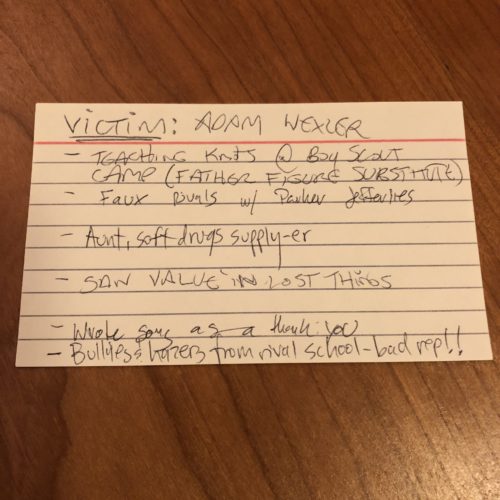 VICTIM: ADAM WEXLER
- TEACHING KNOTS @ BOY SCOUT
CAMP (FATHER FIGURE SUBSTITUTE)
- Faux rivals w/ Parker Jefferies
- Aunt, soft-drugs supply-er
- SAW VALUE IN LOST THINGS
- Wrote song as a thank you
- Bullies & hazers from rival school-bad rep!!